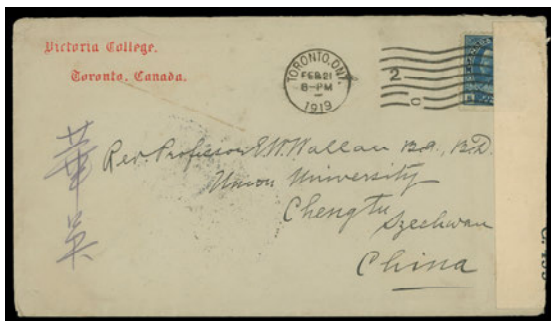 Victoria College,
Toronto, Canada.
TORONTO, ONT.
FEB 21
8-PM
1919
2
c
華英
Rev. Professor E.W. Wallace B.A., B.D.
Union University
Chengtu
Szechwan
China